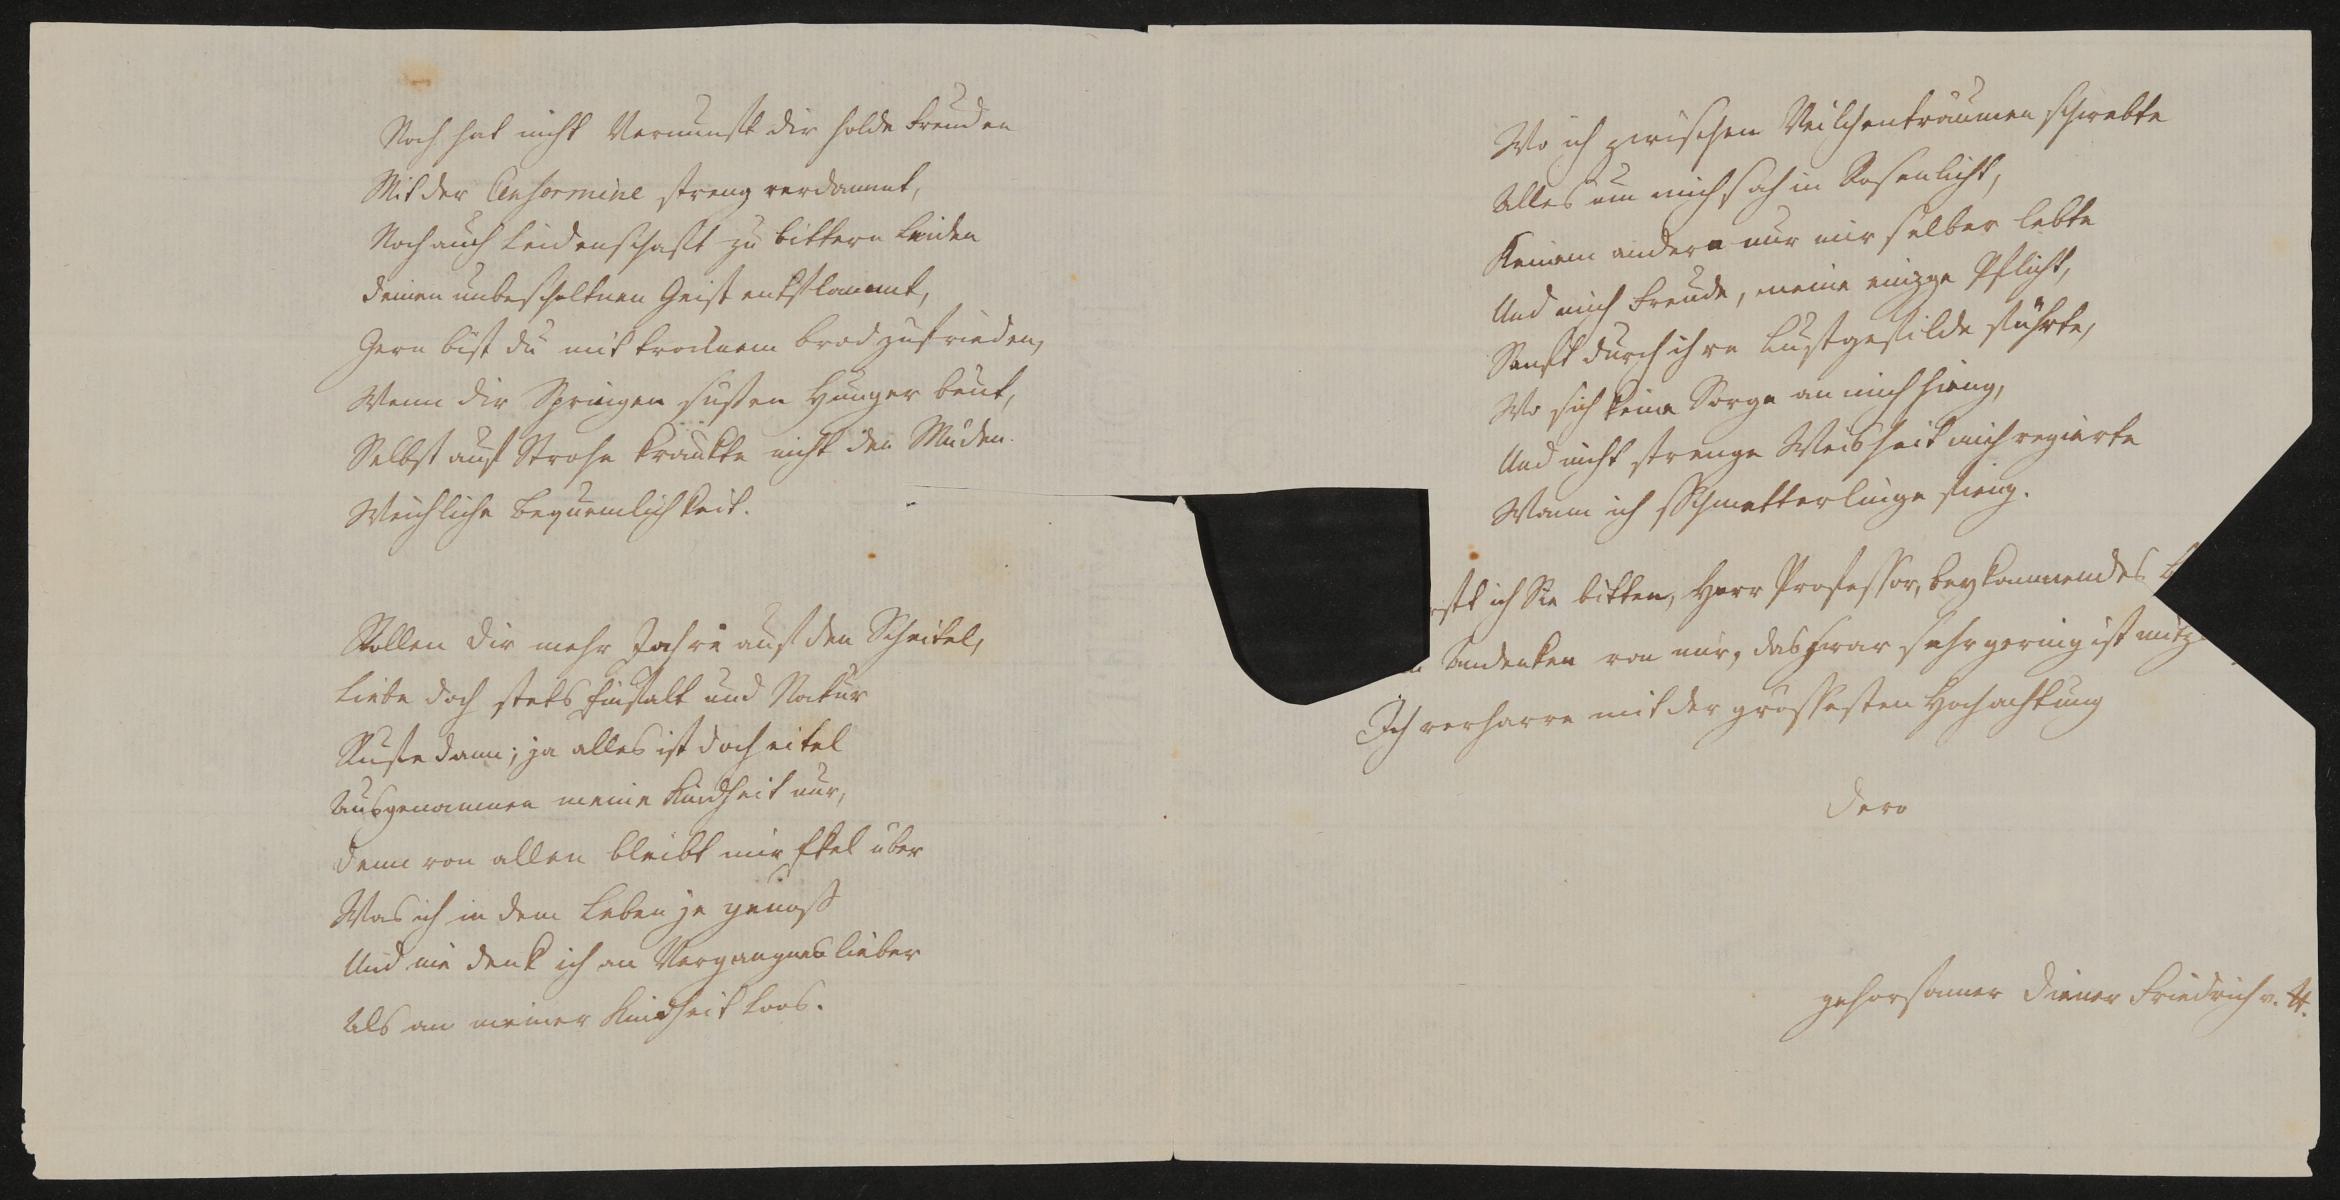 Noch hat nicht Vernunft dir holde Freuden
Mit der Censormine streng verdammt,
Noch auch Leidenschaft zu bittern Leiden
Deinen unbescholtnen Geist entflammt,
Gern bist du mit trocknem Brod zufrieden,
Wenn dir Springen süßen Hunger beut,
Selbst auf Strohe kränkte nicht den Müden
Weichliche Bequemlichkeit.
Rollen dir mehr Jahre auf den Scheitel,
Liebe doch stets Einfalt und Natur
Rufe dann; ja alles ist doch eitel
Ausgenommen meine Kindheit nur,
Denn von allen bleibt mir Ekel über
Was ich in dem Leben je genoß
Und nie denk ich an Vergangnes lieber
Als an meiner Kindheit Loos.
Wo ich zwischen Veilchenträumen schwebte
Alles um mich sah in Rosenlicht,
Keinem andern nur mir selber lebte
Und mich Freude, meine einzge Pflicht,
Sanft durch ihre Lustgefilde führte,
Wo sich keine Sorge an mich hieng,
Und nicht strenge Weisheit mich regierte
Wann ich Schmetterlinge fieng.
ich Sie bitten, Herr Professor, beykommendes
Andenken von mir, das zwar sehr gering ist
Ich verharre mit der grössesten Hochachtung
Dero
gehorsamer Diener Friedrich v. H.